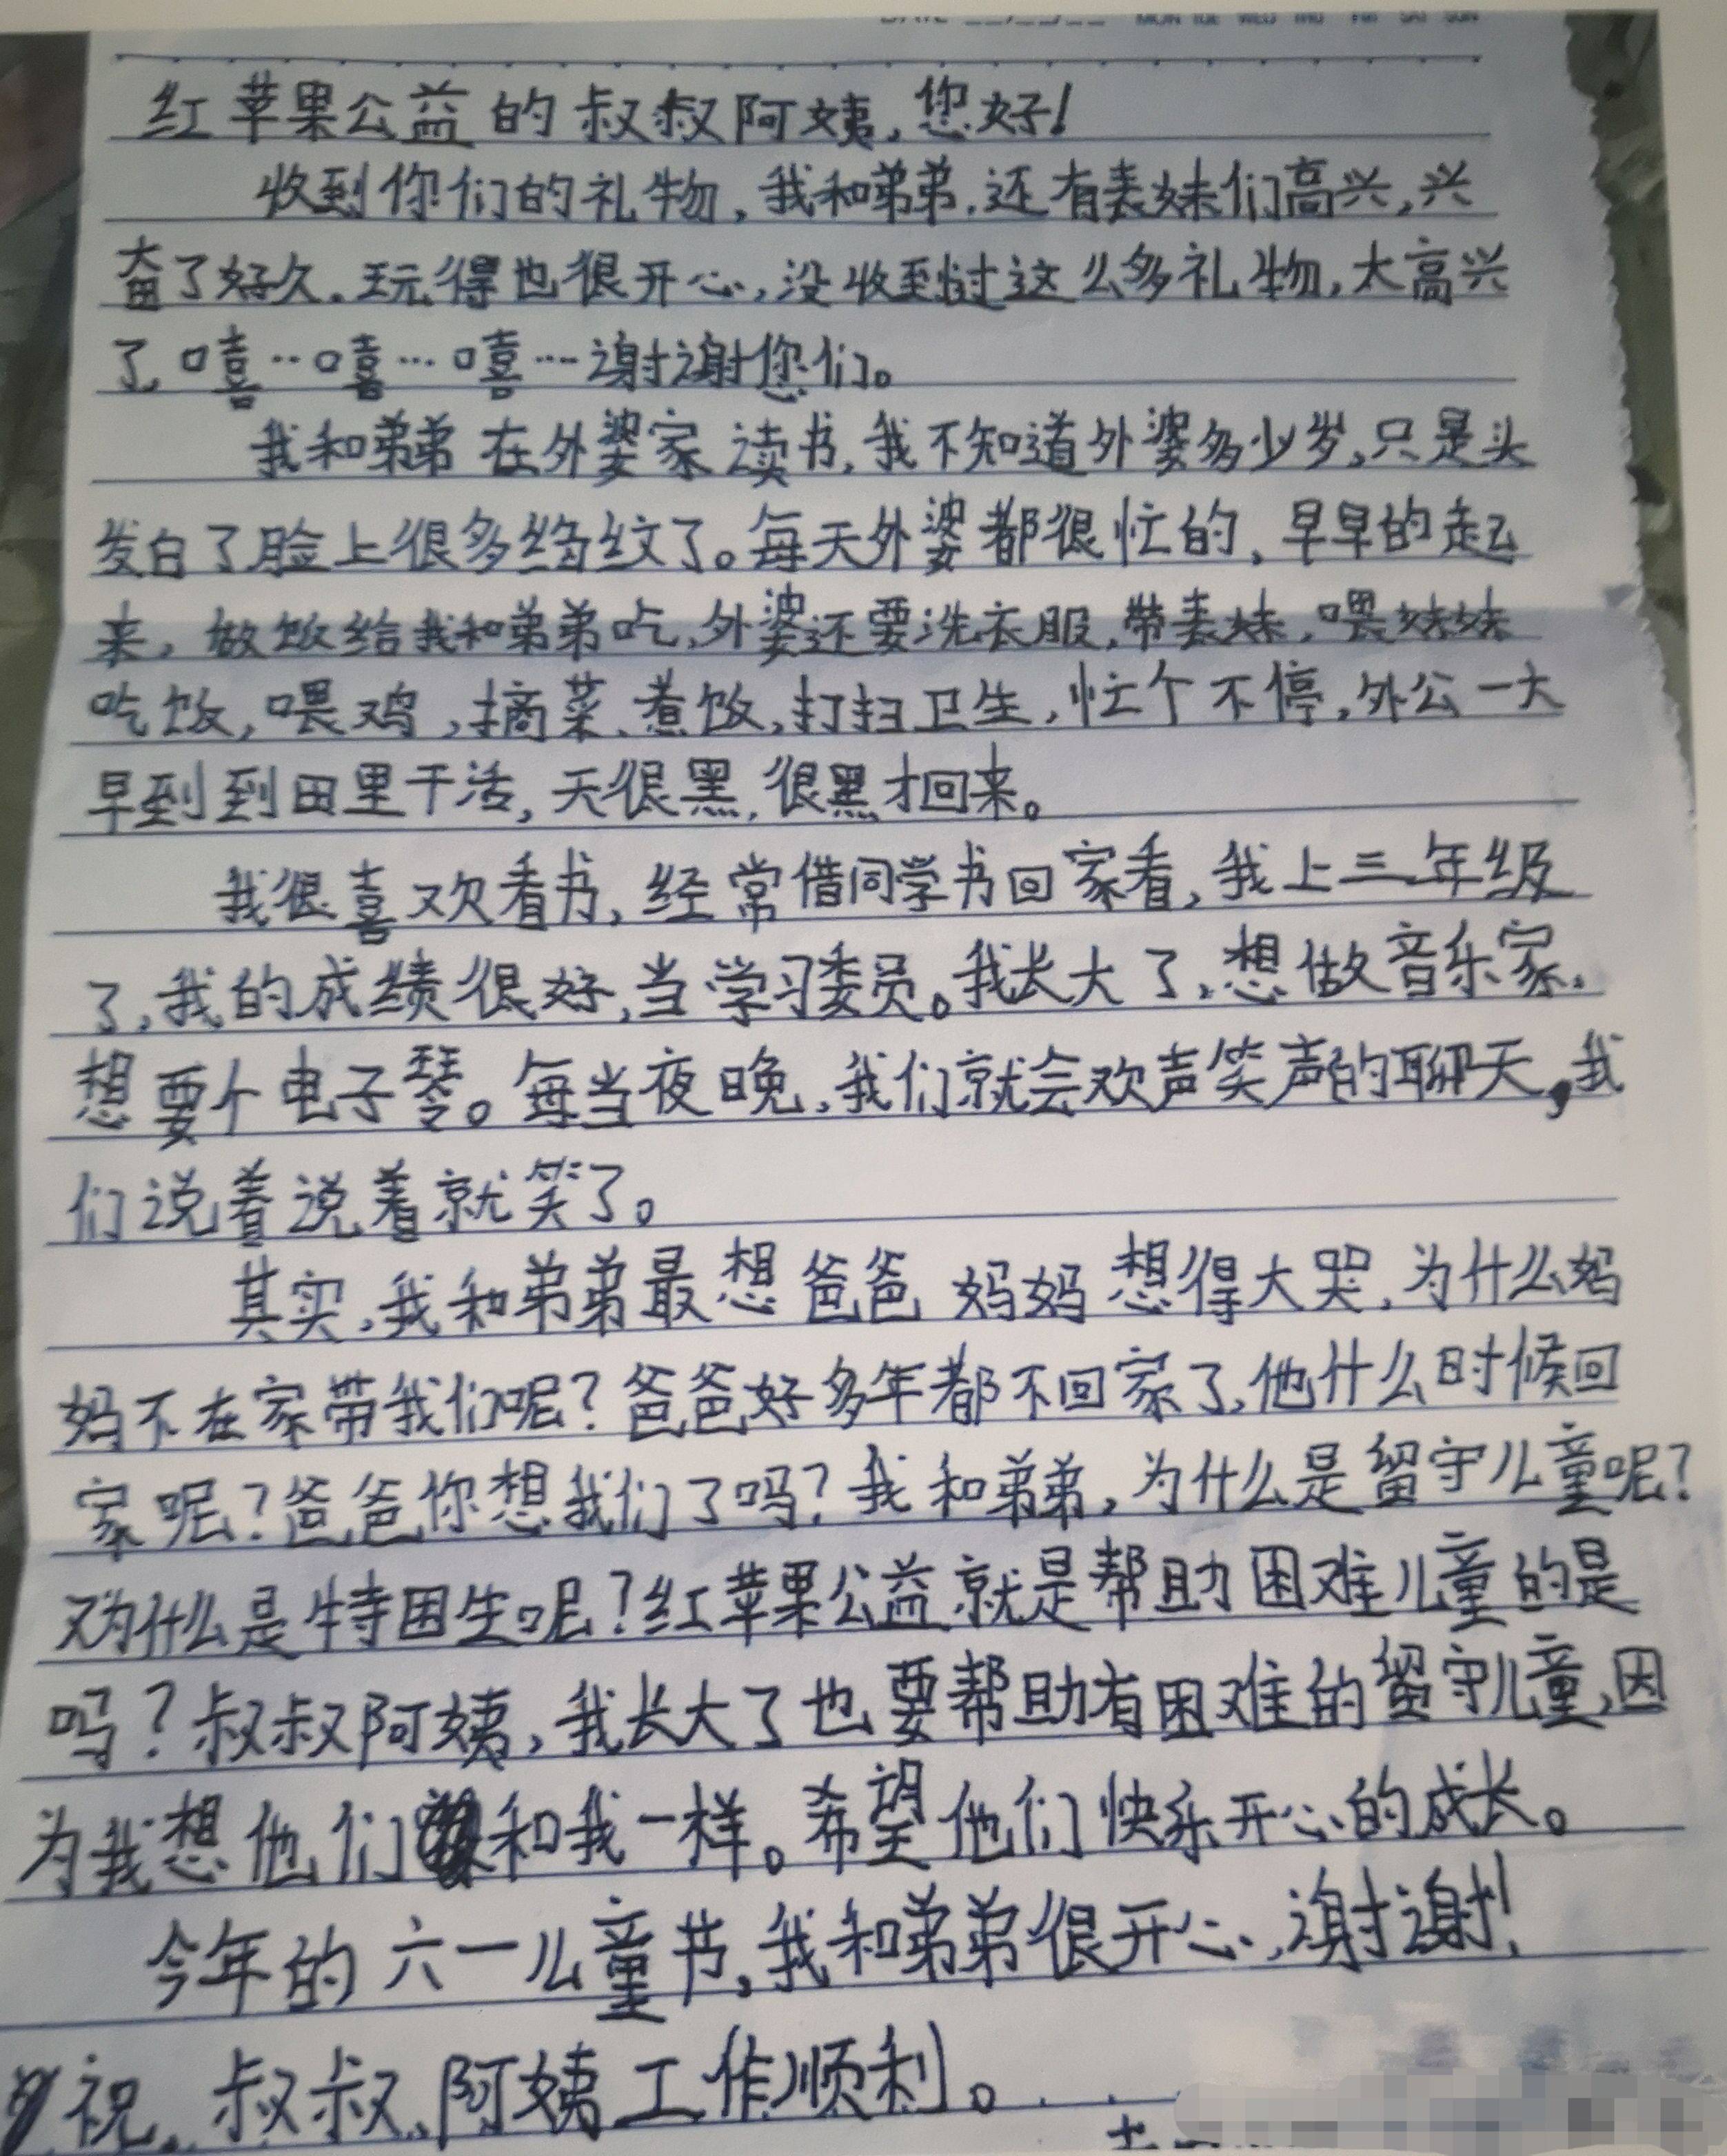 DATE MON TUE WED THU FRI SAT SUN
红苹果公益的叔叔阿姨,您好!
收到你们的礼物,我和弟弟,还有表妹们高兴,兴
奋了好久.玩得也很开心,没收到过这么多礼物,太高兴
了嘻…嘻…嘻…谢谢您们。
我和弟弟在外婆家读书,我不知道外婆多少岁,只是头
发白了脸上很多绉纹了。每天外婆都很忙的,早早的起
来,做饭给我和弟弟吃,外婆还要洗衣服,带表妹,喂妹妹
吃饭,喂鸡,摘菜、煮饭,打扫卫生,忙个不停,外公一大
早到到田里干活,天很黑,很黑才回来。
我很喜欢看书,经常借同学书回家看,我上三年级
了,我的成绩很好,当学习委员。我长大了,想做音乐家,
想要个电子琴。每当夜晚,我们就会欢声笑声的聊天,我
们说着说着就笑了。
其实,我和弟弟最想爸爸妈妈想得大哭,为什么妈
妈不在家带我们呢?爸爸好多年都不回家了,他什么时候回
家呢?爸爸你想我们了吗?我和弟弟,为什么是留守儿童呢?
又为什么是特困生呢?红苹果公益就是帮助困难儿童的是
吗?叔叔阿姨,我长大了也要帮助有困难的留守儿童,因
为我想他们和我一样。希望他们快乐开心的成长。
今年的六一儿童节,我和弟弟很开心,谢谢!
祝,叔叔、阿姨工作顺利。